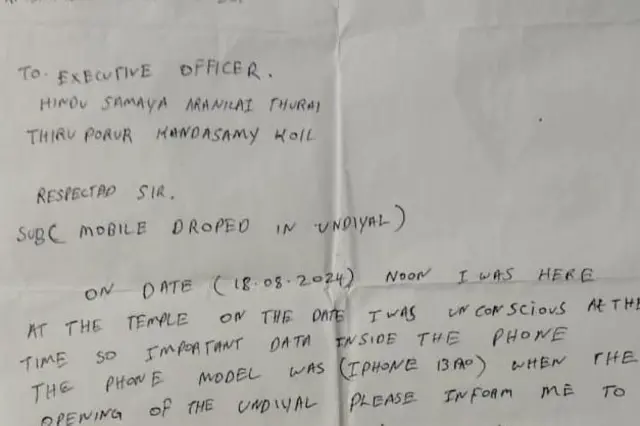 TO. EXECUTIVE OFFICER.
HINDU SAMAYA ARANILAI THURAI
THIRU PORUR KANDASAMY KOIL
RESPECTAD SIR.
SUB( MOBILE DROPED IN UNDIYAL)
ON DATE (18.08.2024) NOON I WAS HERE
AT THE TEMPLE ON THE DATE I WAS UN CONSCIOUS AT THE
TIME SO IMPORTANT DATA INSIDE THE PHONE
THE PHONE MODEL WAS (IPHONE 13 PRO) WHEN THE
OPENING OF THE UNDIYAL PLEASE INFORM ME TO